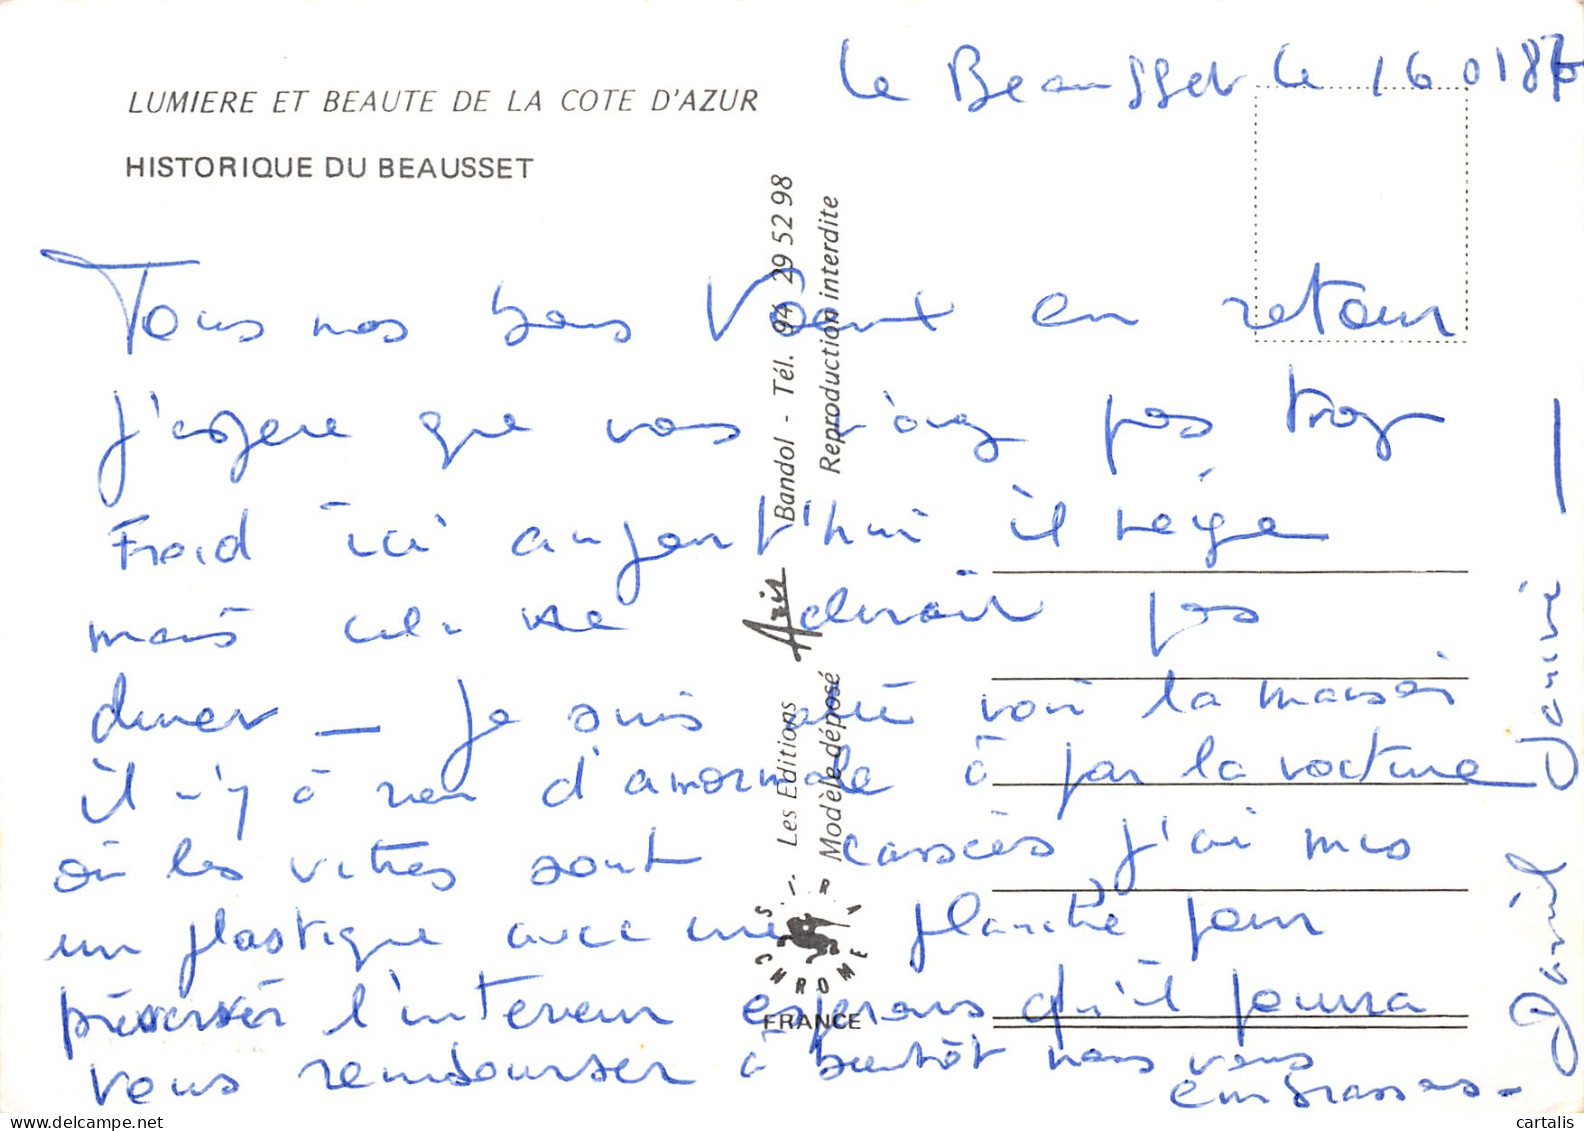 LUMIERE ET BEAUTE DE LA COTE D'AZUR
HISTORIQUE DU BEAUSSET
Le Beausset le 16 01 87
Tous nos bons Voeux en retour
J'espere que vous n'avez pas trop
Froid ici aujourd'hui il neige
mais cela ne durait pas
durer — Je suis allé voir la maison
il n'y à rien d'anormale à par la voiture
où les vitres sont cassées j'ai mis
un plastique avec une planche pour
préserver l'interieur esperons qu'il pourra
vous rembourser à bientôt nous vous
embrassons -
Daniel Janine
Les Editions Aris Bandol - Tél. 94 29 52 98
Modèle déposé Reproduction interdite
S.I.R.A. CHROME
FRANCE
cartalis